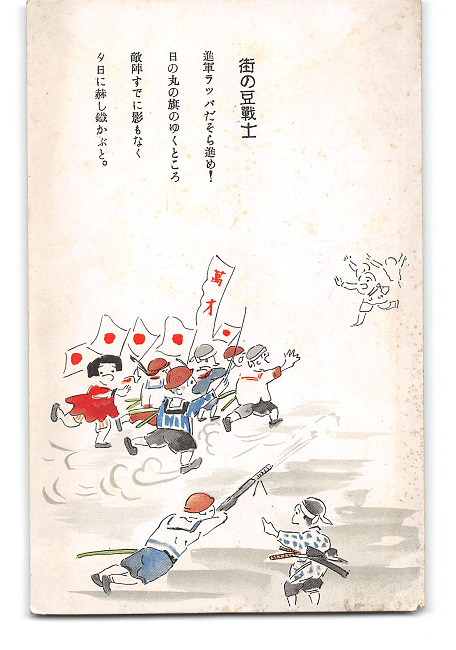 街の豆戰士
進軍ラッパだそら進め!
日の丸の旗のゆくところ
敵陣すでに影もなく
夕日に赫し鐵かぶと。
萬才